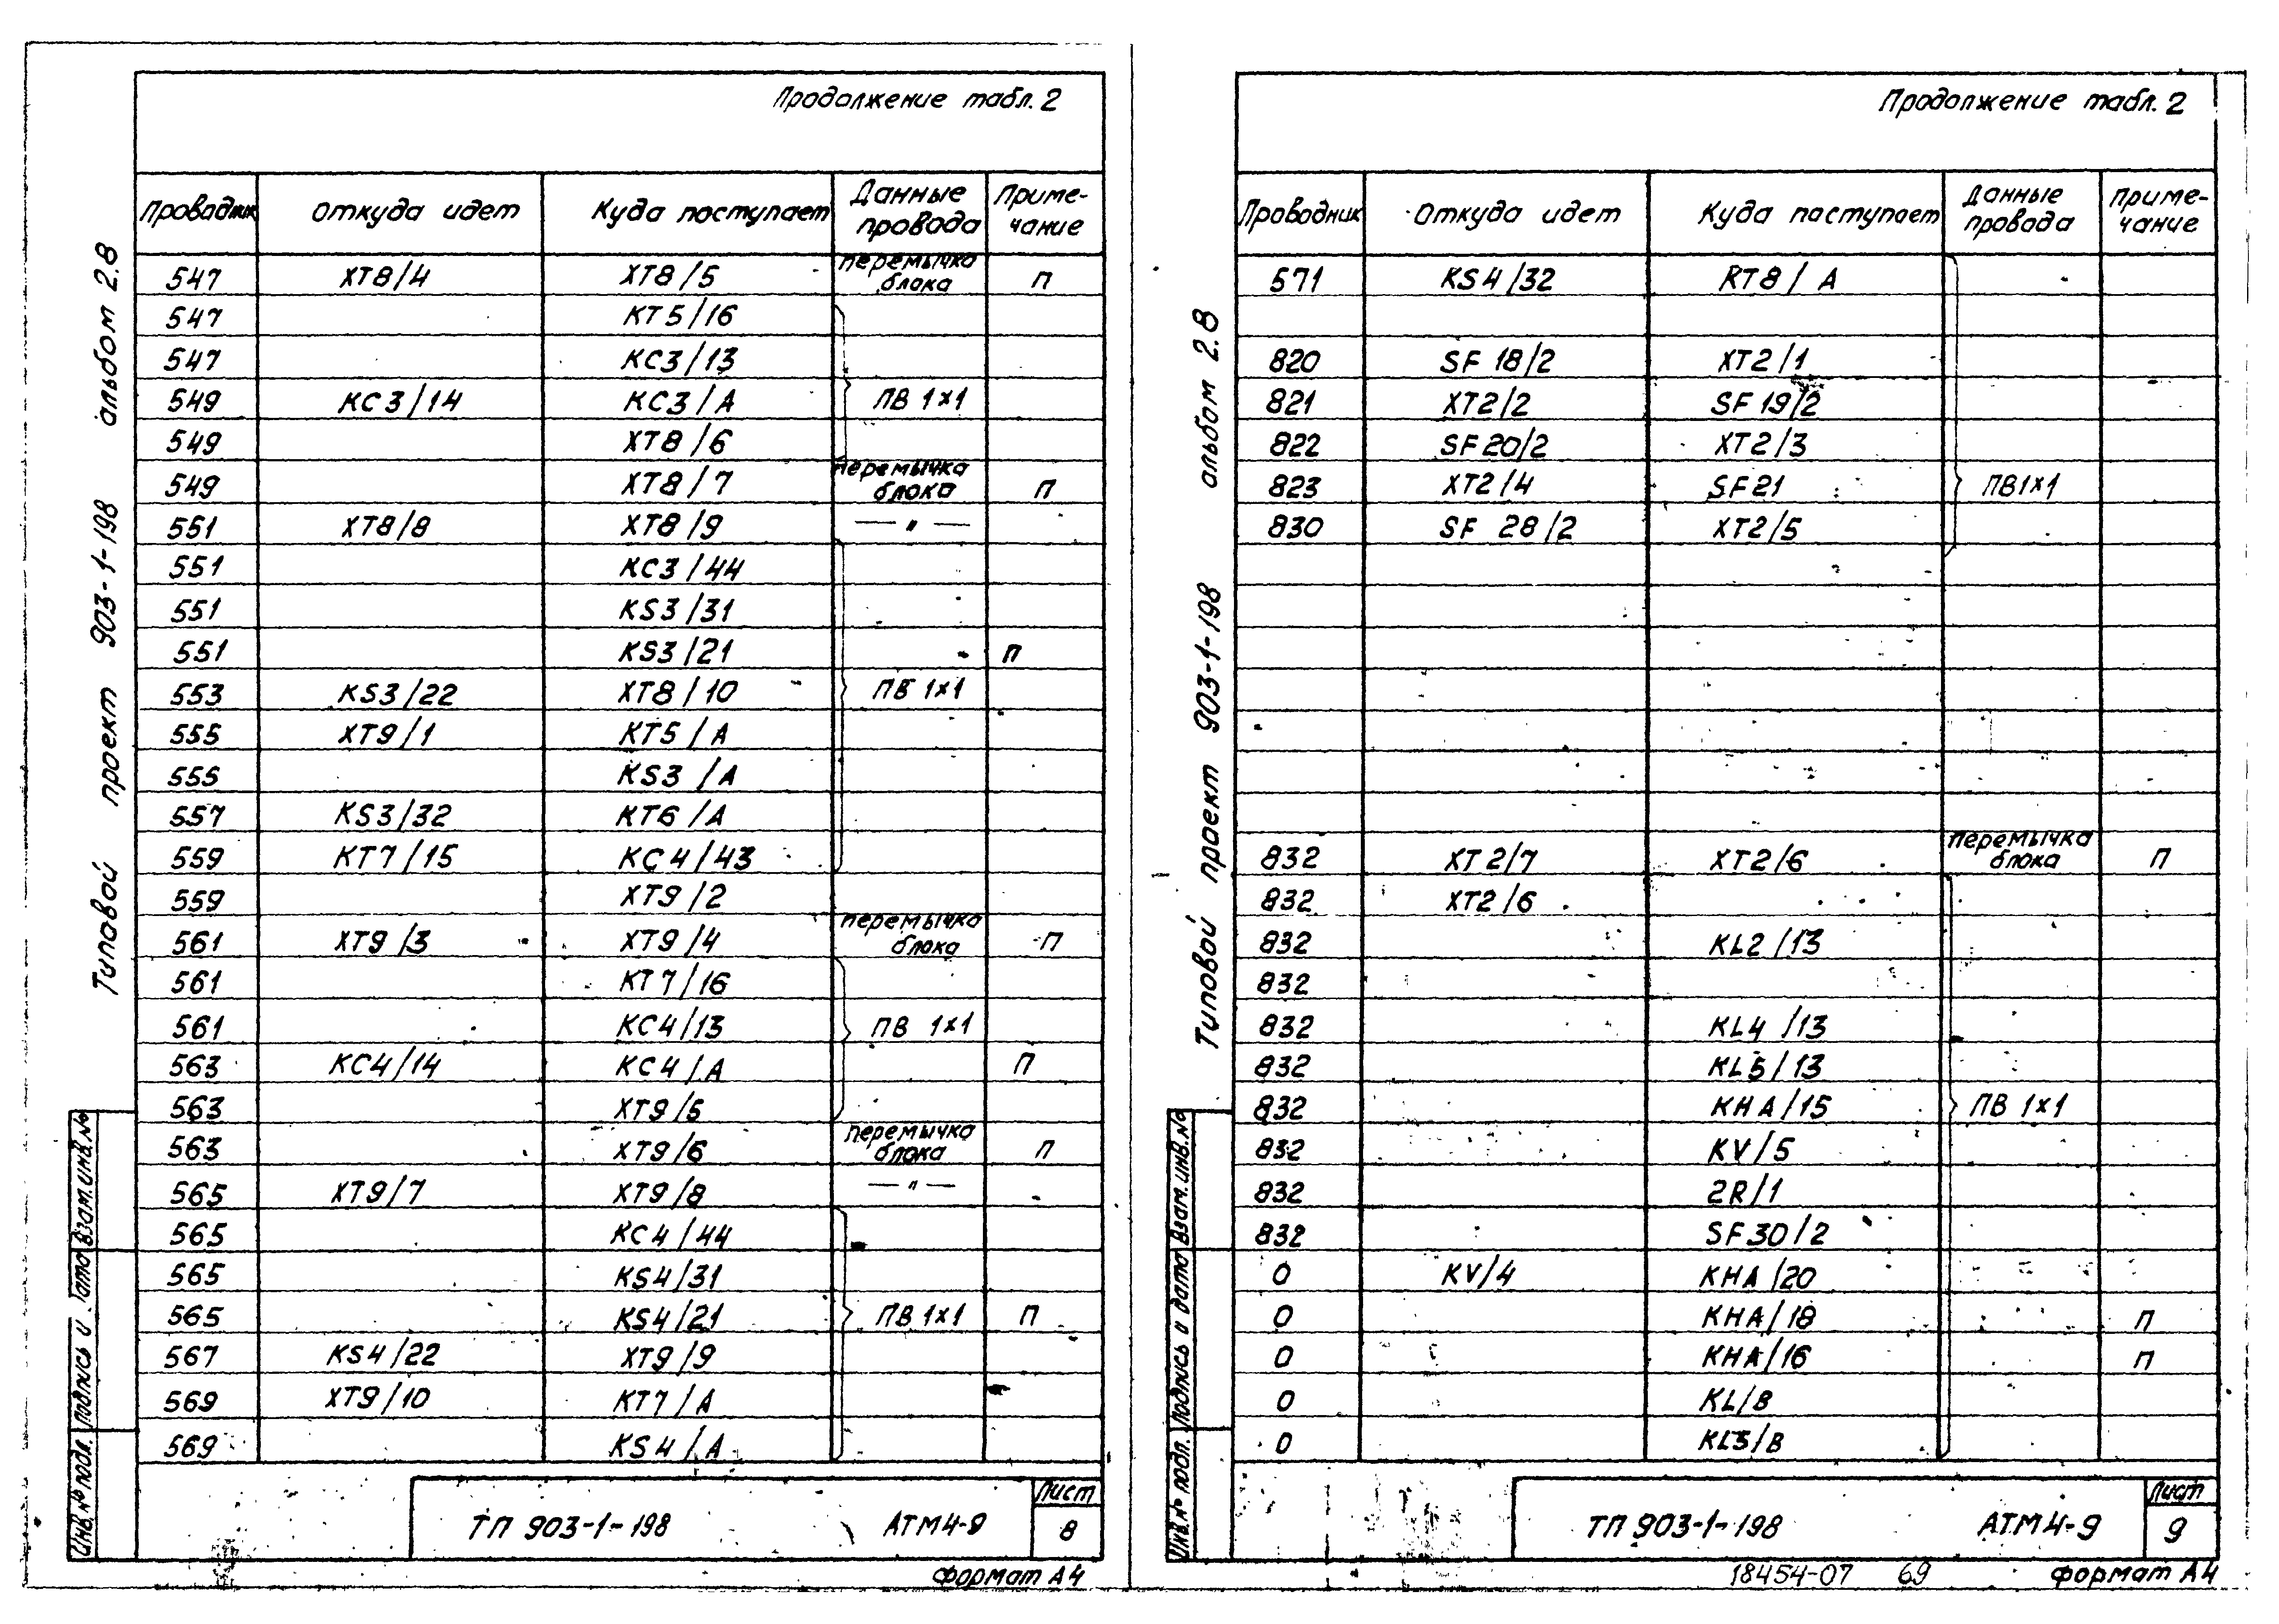 Продолжение табл. 2
Проводник Откуда идет Куда поступает Данные провода Примечание
547 XT8/4 XT8/5 перемычка блока П
547 KT5/16
547 KC3/13
549 KC3/14 KC3/A ПВ 1×1
549 XT8/6
549 XT8/7 перемычка блока П
551 XT8/8 XT8/9 — " —
551 KC3/44
551 KS3/31
551 KS3/21 П
553 KS3/22 XT8/10 ПВ 1×1
555 XT9/1 KT5/A
555 KS3/A
557 KS3/32 KT6/A
559 KT7/15 KC4/43
559 XT9/2
561 XT9/3 XT9/4 перемычка блока П
561 KT7/16
561 KC4/13 ПВ 1×1
563 KC4/14 KC4/A П
563 XT9/5
563 XT9/6 перемычка блока П
565 XT9/7 XT9/8 — " —
565 KC4/44
565 KS4/31
565 KS4/21 ПВ 1×1 П
567 KS4/22 XT9/9
569 XT9/10 KT7/A
569 KS4/A
ТП 903-1-198 АТМ4-9 Лист 8
Формат А4
Типовой проект 903-1-198 альбом 2.8
Инв.№ подл. Подпись и дата Взам.инв.№
Продолжение табл. 2
Проводник Откуда идет Куда поступает Данные провода Примечание
571 KS4/32 RT8/A
820 SF18/2 XT2/1
821 XT2/2 SF19/2
822 SF20/2 XT2/3
823 XT2/4 SF21 ПВ1×1
830 SF 28/2 XT2/5
832 XT2/7 XT2/6 перемычка блока П
832 XT2/6
832 KL2/13
832
832 KL4/13
832 KL5/13
832 KHA/15 ПВ 1×1
832 KV/5
832 2R/1
832 SF30/2
0 KV/4 KHA/20
0 KHA/18 П
0 KHA/16 П
0 KL/B
0 KL3/B
ТП 903-1-198 АТМ4-9 Лист 9
18454-07 69 Формат А4
Типовой проект 903-1-198 альбом 2.8
Инв.№ подл. Подпись и дата Взам.инв.№